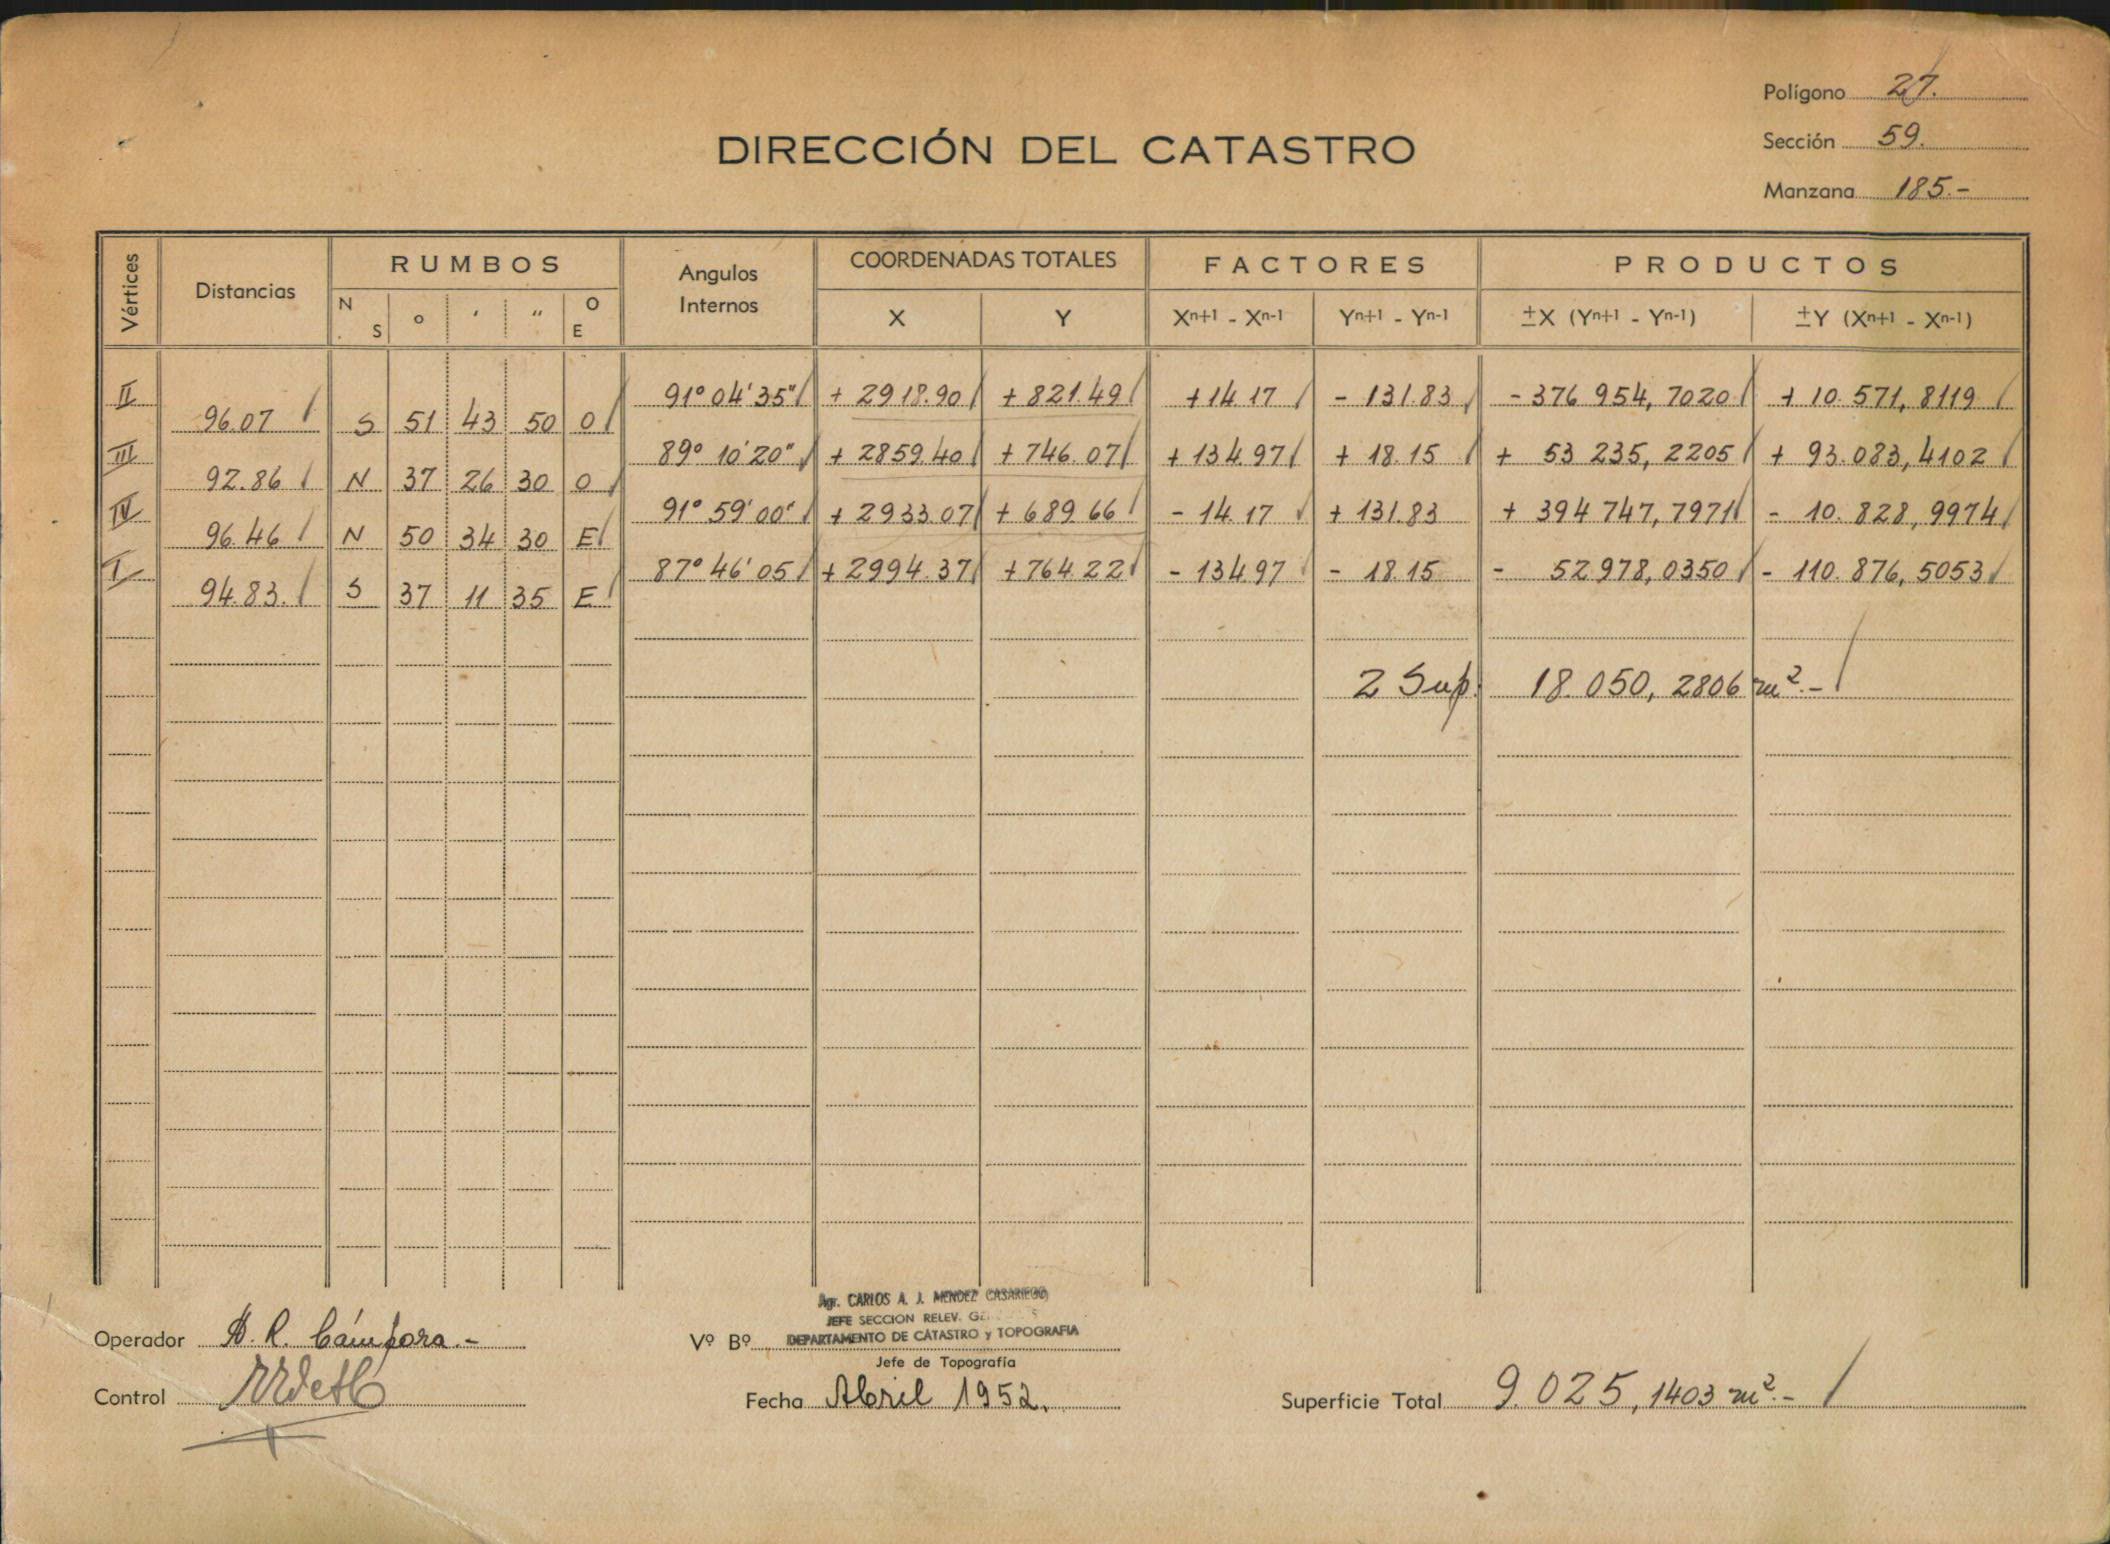 Polígono 27.
Sección 59.
Manzana 185.-
DIRECCIÓN DEL CATASTRO
Vértices Distancias RUMBOS Angulos Internos COORDENADAS TOTALES FACTORES PRODUCTOS
N S ° ' " O E X Y Xⁿ⁺¹ - Xⁿ⁻¹ Yⁿ⁺¹ - Yⁿ⁻¹ ±X (Yⁿ⁺¹ - Yⁿ⁻¹) ±Y (Xⁿ⁺¹ - Xⁿ⁻¹)
II 91° 04' 35" + 2918.90 + 821.49 + 14.17 - 131.83 - 376 954,7020 + 10.571,8119
96.07 S 51 43 50 O
III 89° 10' 20" + 2859.40 + 746.07 + 134.97 + 18.15 + 53 235,2205 + 93.083,4102
92.86 N 37 26 30 O
IV 91° 59' 00" + 2933.07 + 689.66 - 14.17 + 131.83 + 394 747,7971 - 10.828,9974
96.46 N 50 34 30 E
I 87° 46' 05 + 2994.37 + 764.22 - 134.97 - 18.15 - 52 978,0350 - 110.876,5053
94.83. S 37 11 35 E
2 Sup. 18.050,2806 m².-
Agr. CARLOS A. J. MENDEZ CASARIEGO
JEFE SECCION RELEV.
DEPARTAMENTO DE CATASTRO y TOPOGRAFIA
Operador R. Cámpora.- Vº Bº
Jefe de Topografía
Control Fecha Abril 1952. Superficie Total 9.025,1403 m².-